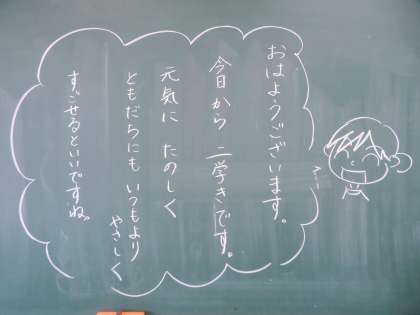 おはようございます。
今日から 二学きです。
元気に たのしく
ともだちにも いつもより
やさしく
すごせるといいですね。